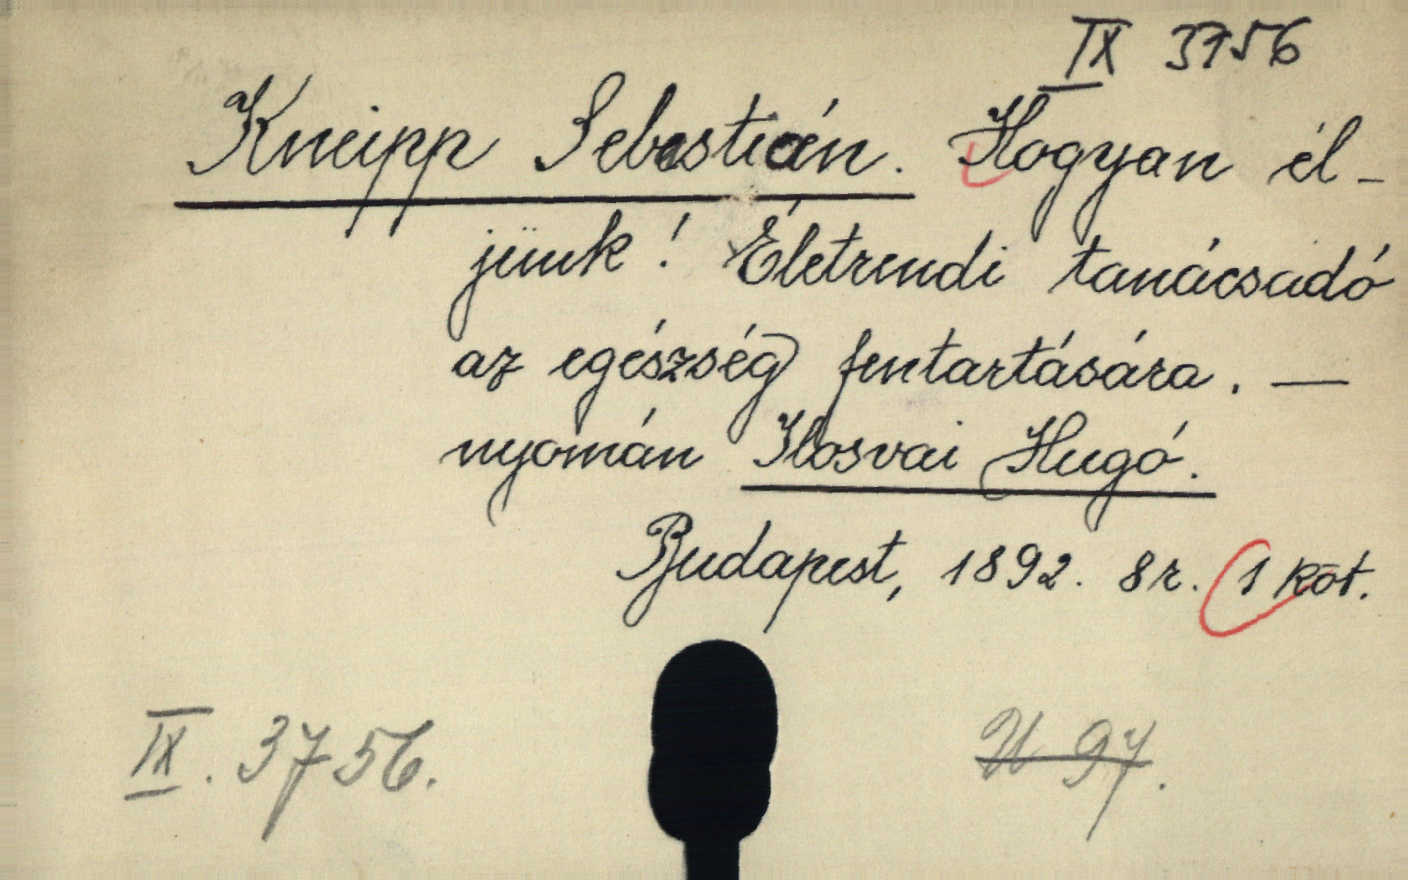 IX 3756
Kneipp Sebestián. Hogyan él-
jünk! Életrendi tanácsadó
az egészség fentartására. —
nyomán Ilosvai Hugó.
Budapest, 1892. 8r. 1 köt.
IX. 3756.
U 97.